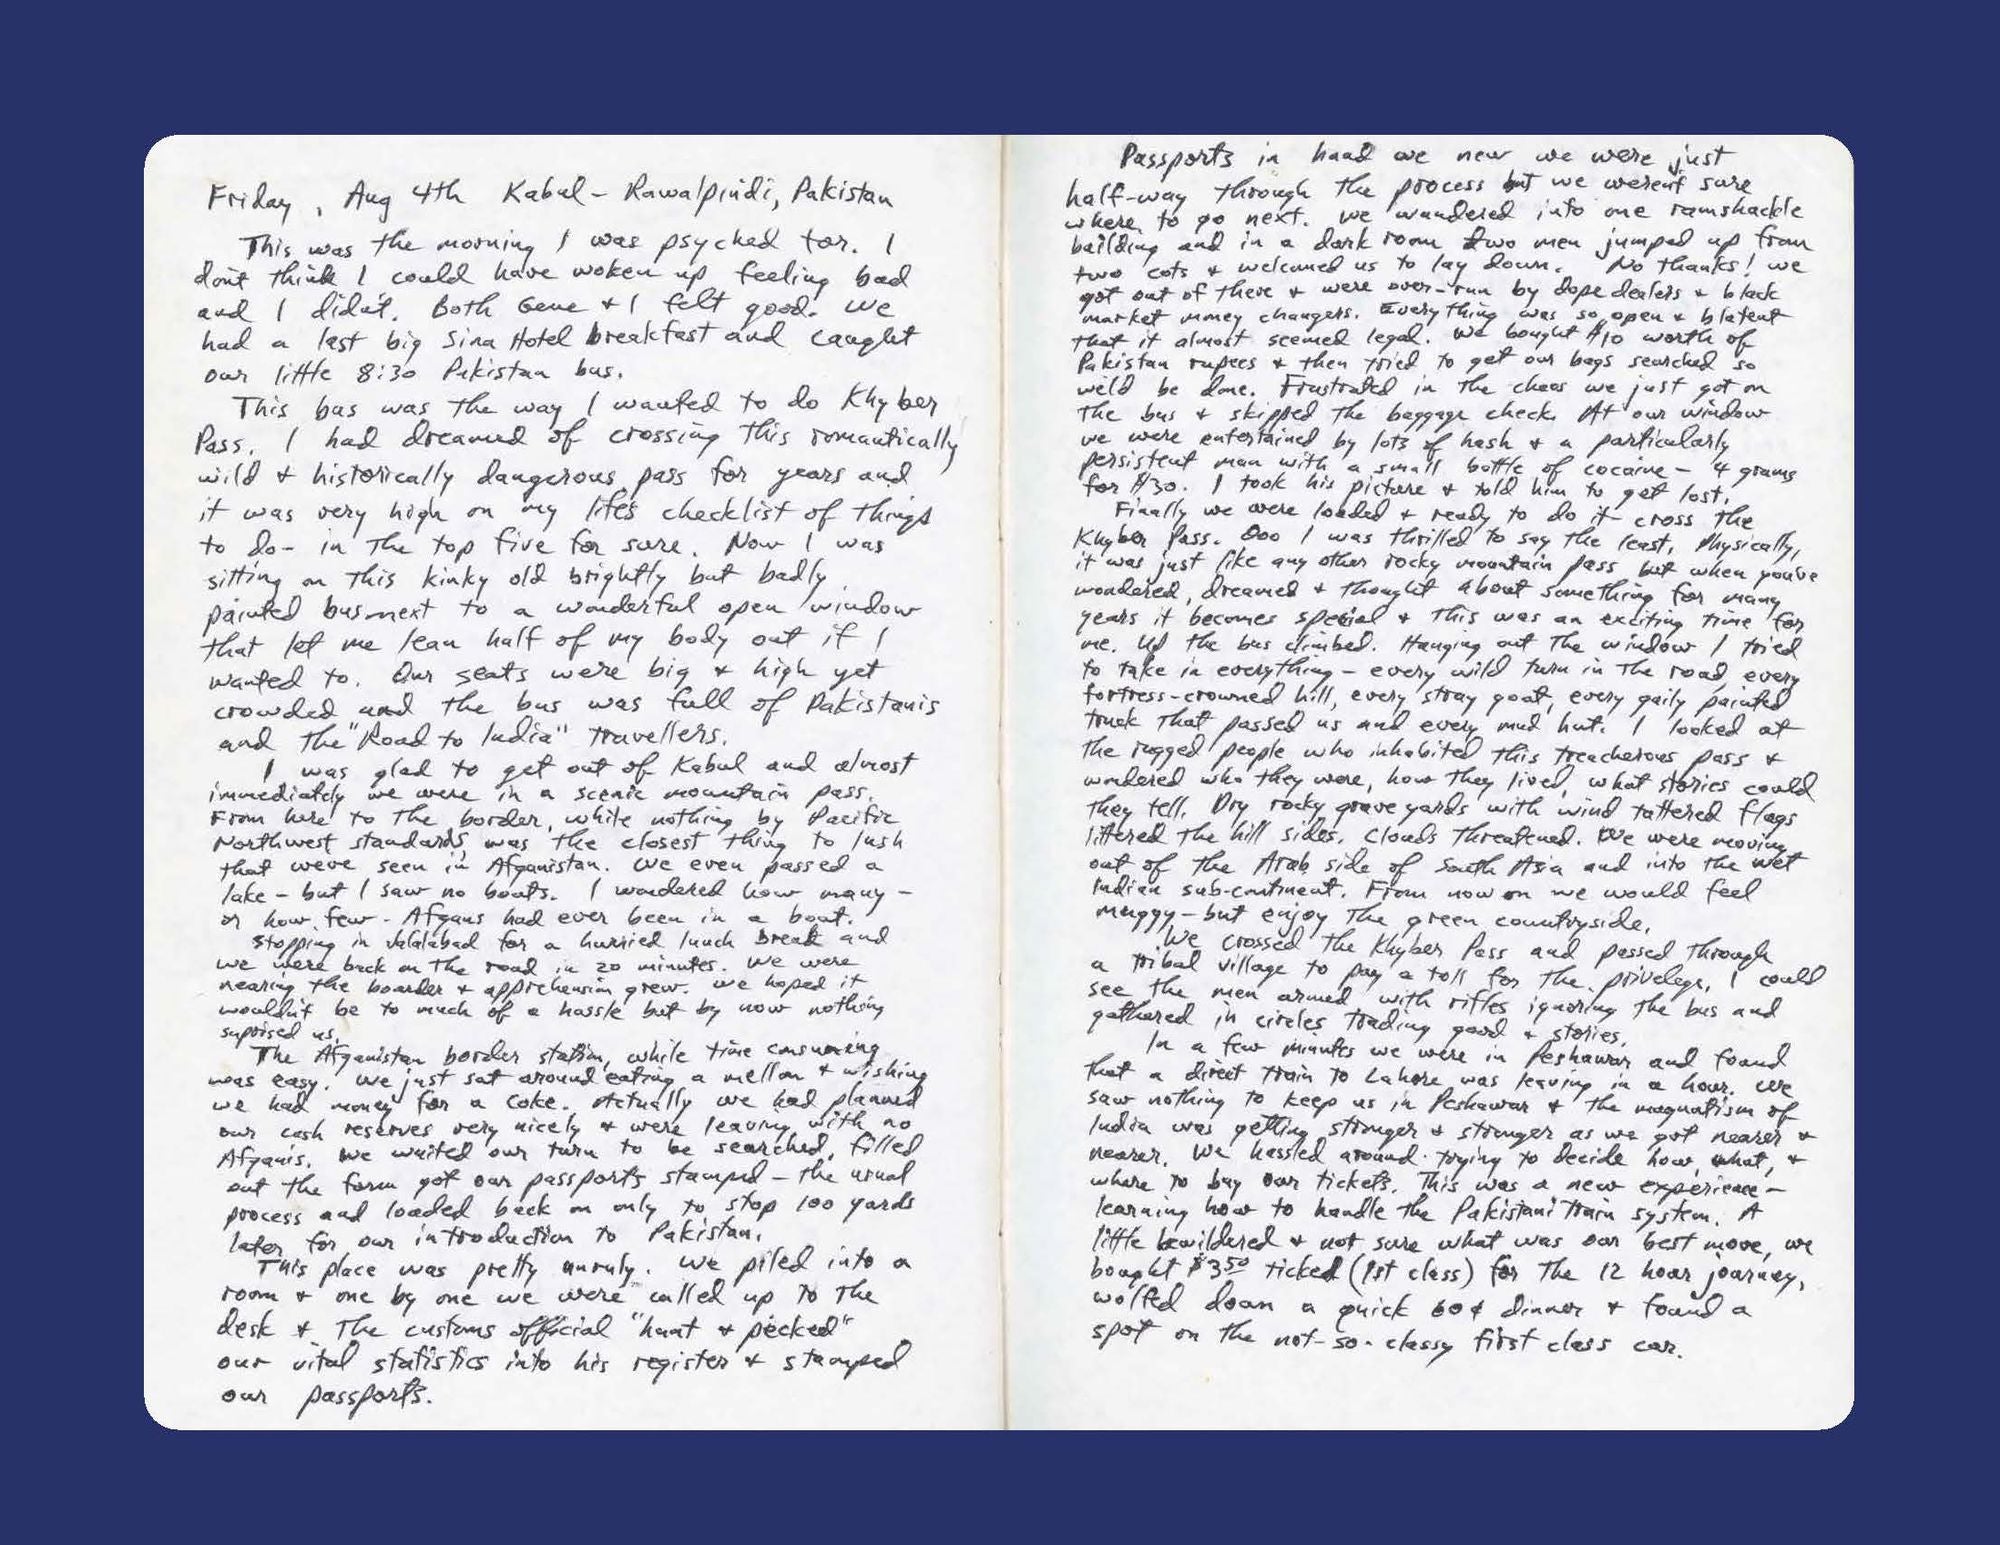 Friday, Aug 4th Kabul - Rawalpindi, Pakistan
This was the morning I was psyched for. I
don't think I could have woken up feeling bad
and I didn't. Both Gene + I felt good. We
had a last big Sina Hotel breakfast and caught
our little 8:30 Pakistan bus.
This bus was the way I wanted to do Khyber
Pass. I had dreamed of crossing this romantically
wild + historically dangerous pass for years and
it was very high on my life's checklist of things
to do - in the top five for sure. Now I was
sitting on this kinky old brightly but badly
painted bus next to a wonderful open window
that let me lean half of my body out if I
wanted to. Our seats were big + high yet
crowded and the bus was full of Pakistanis
and the "Road to India" travellers.
I was glad to get out of Kabul and almost
immediately we were in a scenic mountain pass.
From here to the border, while nothing by Pacific
Northwest standards, was the closest thing to lush
that weve seen in Afganistan. We even passed a
lake - but I saw no boats. I wondered how many -
or how few - Afgans had ever been in a boat.
Stopping in Jalalabad for a hurried lunch break and
we were back on the road in 20 minutes. We were
nearing the boarder + apprehension grew. We hoped it
wouldn't be to much of a hassle but by now nothing
suprised us.
The Afganistan border station, while time consuming
was easy. We just sat around eating a mellon + wishing
we had money for a Coke. Actually we had planned
our cash reserves very nicely + were leaving with no
Afganis. We waited our turn to be searched, filled
out the form got our passports stamped - the usual
process and loaded back on only to stop 100 yards
later for our introduction to Pakistan.
This place was pretty unruly. We piled into a
room + one by one we were called up to the
desk + the customs official "hunt + pecked"
our vital statistics into his register + stamped
our passports.
Passports in hand we new we were just
half-way through the process but we weren't sure
where to go next. We wandered into one ramshackle
building and in a dark room two men jumped up from
two cots + welcomed us to lay down. No thanks! We
got out of there + were over-run by dope dealers + black
market money changers. Everything was so open + blatent
that it almost seemed legal. We bought $10 worth of
Pakistan rupees + then tried to get our bags searched so
we'd be done. Frustrated in the chaos we just got on
the bus + skipped the baggage check. At our window
we were entertained by lots of hash + a particularly
persistent man with a small bottle of cocaine - 4 grams
for $30. I took his picture + told him to get lost.
Finally we were loaded + ready to do it - cross the
Khyber Pass. Ooo I was thrilled to say the least. Physically,
it was just like any other rocky mountain pass but when you've
wondered, dreamed + thought about something for many
years it becomes special + this was an exciting time for
me. Up the bus climbed. Hanging out the window I tried
to take in everything - every wild turn in the road, every
fortress-crowned hill, every stray goat, every gaily painted
truck that passed us and every mud hut. I looked at
the rugged people who inhabited this treacherous pass +
wondered who they were, how they lived, what stories could
they tell. Dry rocky grave yards with wind tattered flags
littered the hill sides. Clouds threatened. We were moving
out of the Arab side of South Asia and into the wet
Indian sub-continent. From now on we would feel
muggy - but enjoy the green countryside.
We crossed the Khyber Pass and passed through
a tribal village to pay a toll for the privelege. I could
see the men armed with rifles ignoring the bus and
gathered in circles trading good + stories.
In a few minutes we were in Peshawar and found
that a direct train to Lahore was leaving in a hour. We
saw nothing to keep us in Peshawar + the magnatism of
India was getting stronger + stronger as we got nearer +
nearer. We hassled around trying to decide how, what, +
where to buy our tickets. This was a new experience -
learning how to handle the Pakistani train system. A
little bewildered + not sure what was our best move, we
bought $3.50 ticked (1st class) for the 12 hour journey,
wolfed down a quick 60¢ dinner + found a
spot on the not-so-classy first class car.